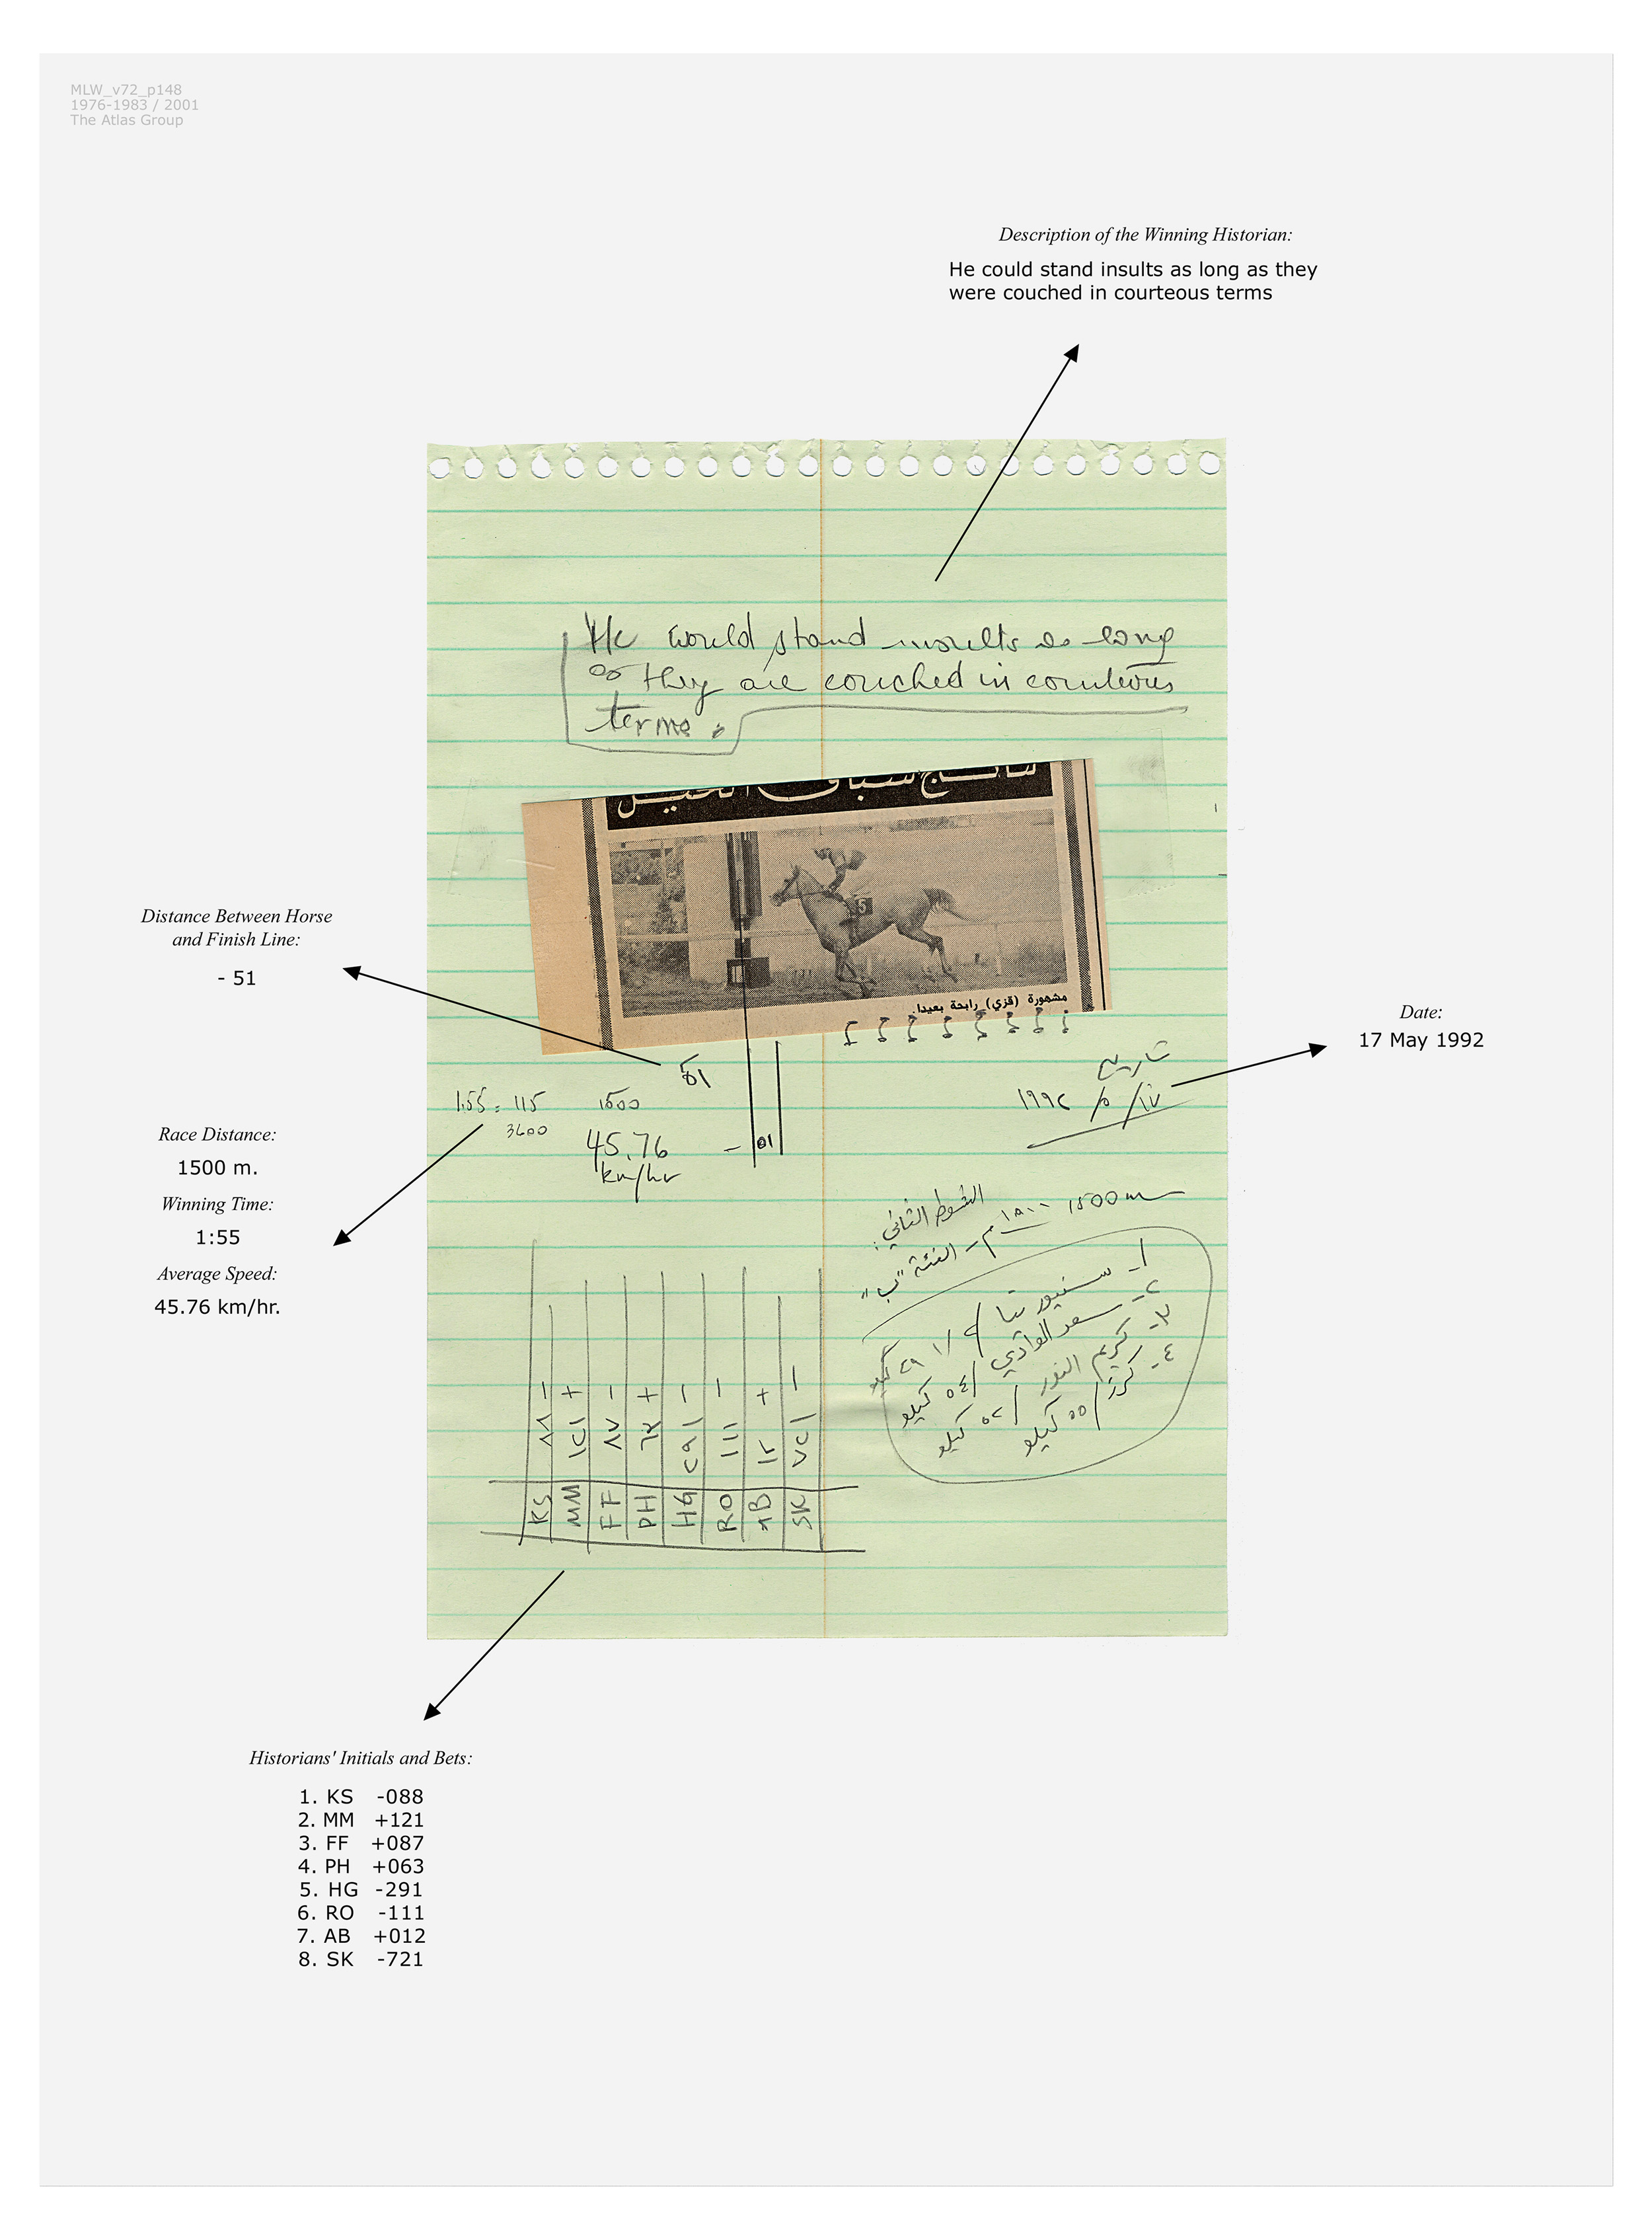 MLW_v72_p148
1976-1983 / 2001
The Atlas Group
Description of the Winning Historian:
He could stand insults as long as they
were couched in courteous terms
He would stand insults as long
as they are couched in courteous
terms.
نتائج سباق الخيل
5
مشهورة (قزي) رابحة بعيدا.
Distance Between Horse
and Finish Line:
- 51
51
1.55 = 115 1500
3600
45.76
km/hr
- 51
تاريخ
١٧/ ٥/ ١٩٩٢
Date:
17 May 1992
Race Distance:
1500 m.
Winning Time:
1:55
Average Speed:
45.76 km/hr.
الشوط الثاني:
١٥٠٠ م - الفئة "ب" 1500 m
١- سنيوريتا
٢- سعد الوادي / ٥٤ كيلو
٣- كريم النور / ٥٢ كيلو
٤- كرز / ٥٥ كيلو
KS ٨٨ -
MM ١٢١ +
FF ٨٧ -
PH ٦٣ +
HG ٢٩١ -
RO ١١١ -
AB ١٢ +
SK ٧٢١ -
Historians' Initials and Bets:
1. KS -088
2. MM +121
3. FF +087
4. PH +063
5. HG -291
6. RO -111
7. AB +012
8. SK -721